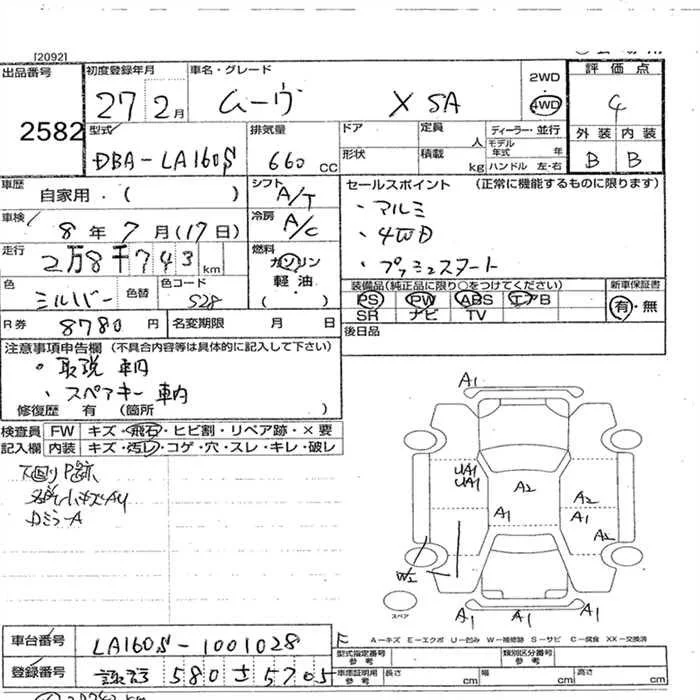 [2092]
出品番号
2582
初度登録年月
27 2月
車名・グレード
ムーヴ X SA
2WD
4WD
評価点
4
外装 内装
B B
型式
DBA-LA160S
排気量
660 cc
ドア
形状
定員 人
積載 kg
ディーラー・並行
モデル年式 年
ハンドル 左・右
車歴
自家用・( )
シフト
A/T
車検
8年7月(17日)
冷房
A/C
走行
2万8千743km
燃料
ガソリン
軽油・
( )
色
色替
色コード
S28
R券
8780円
名変期限 月 日
セールスポイント (正常に機能するものに限ります)
・アルミ
・4WD
・プッシュスタート
装備品(純正品に限り○をつけてください)
PS PW ABS エアB
SR ナビ TV
新車保証書
有・無
後日品
注意事項申告欄 (不具合内容等は具体的に記入して下さい)
・取説 車内
・スペアキー 車内
修復歴 有 (箇所 )
検査員記入欄
FW キズ・飛石・ヒビ割・リペア跡・×要
内装 キズ・汚レ・コゲ・穴・スレ・キレ・破レ
A1
UA1
UA1
A2
A2
A1
A1
A2
W2
A1 A1 A1
スペア
A-キズ E-エクボ U-凹み W-補修跡 S-サビ C-腐食 XX-交換済
車台番号
LA160S-1001028
登録番号
580 さ 5705
型式指定番号 参考
類別区分番号 参考
車庫証明用 参考
長さ cm 幅 cm 高さ cm